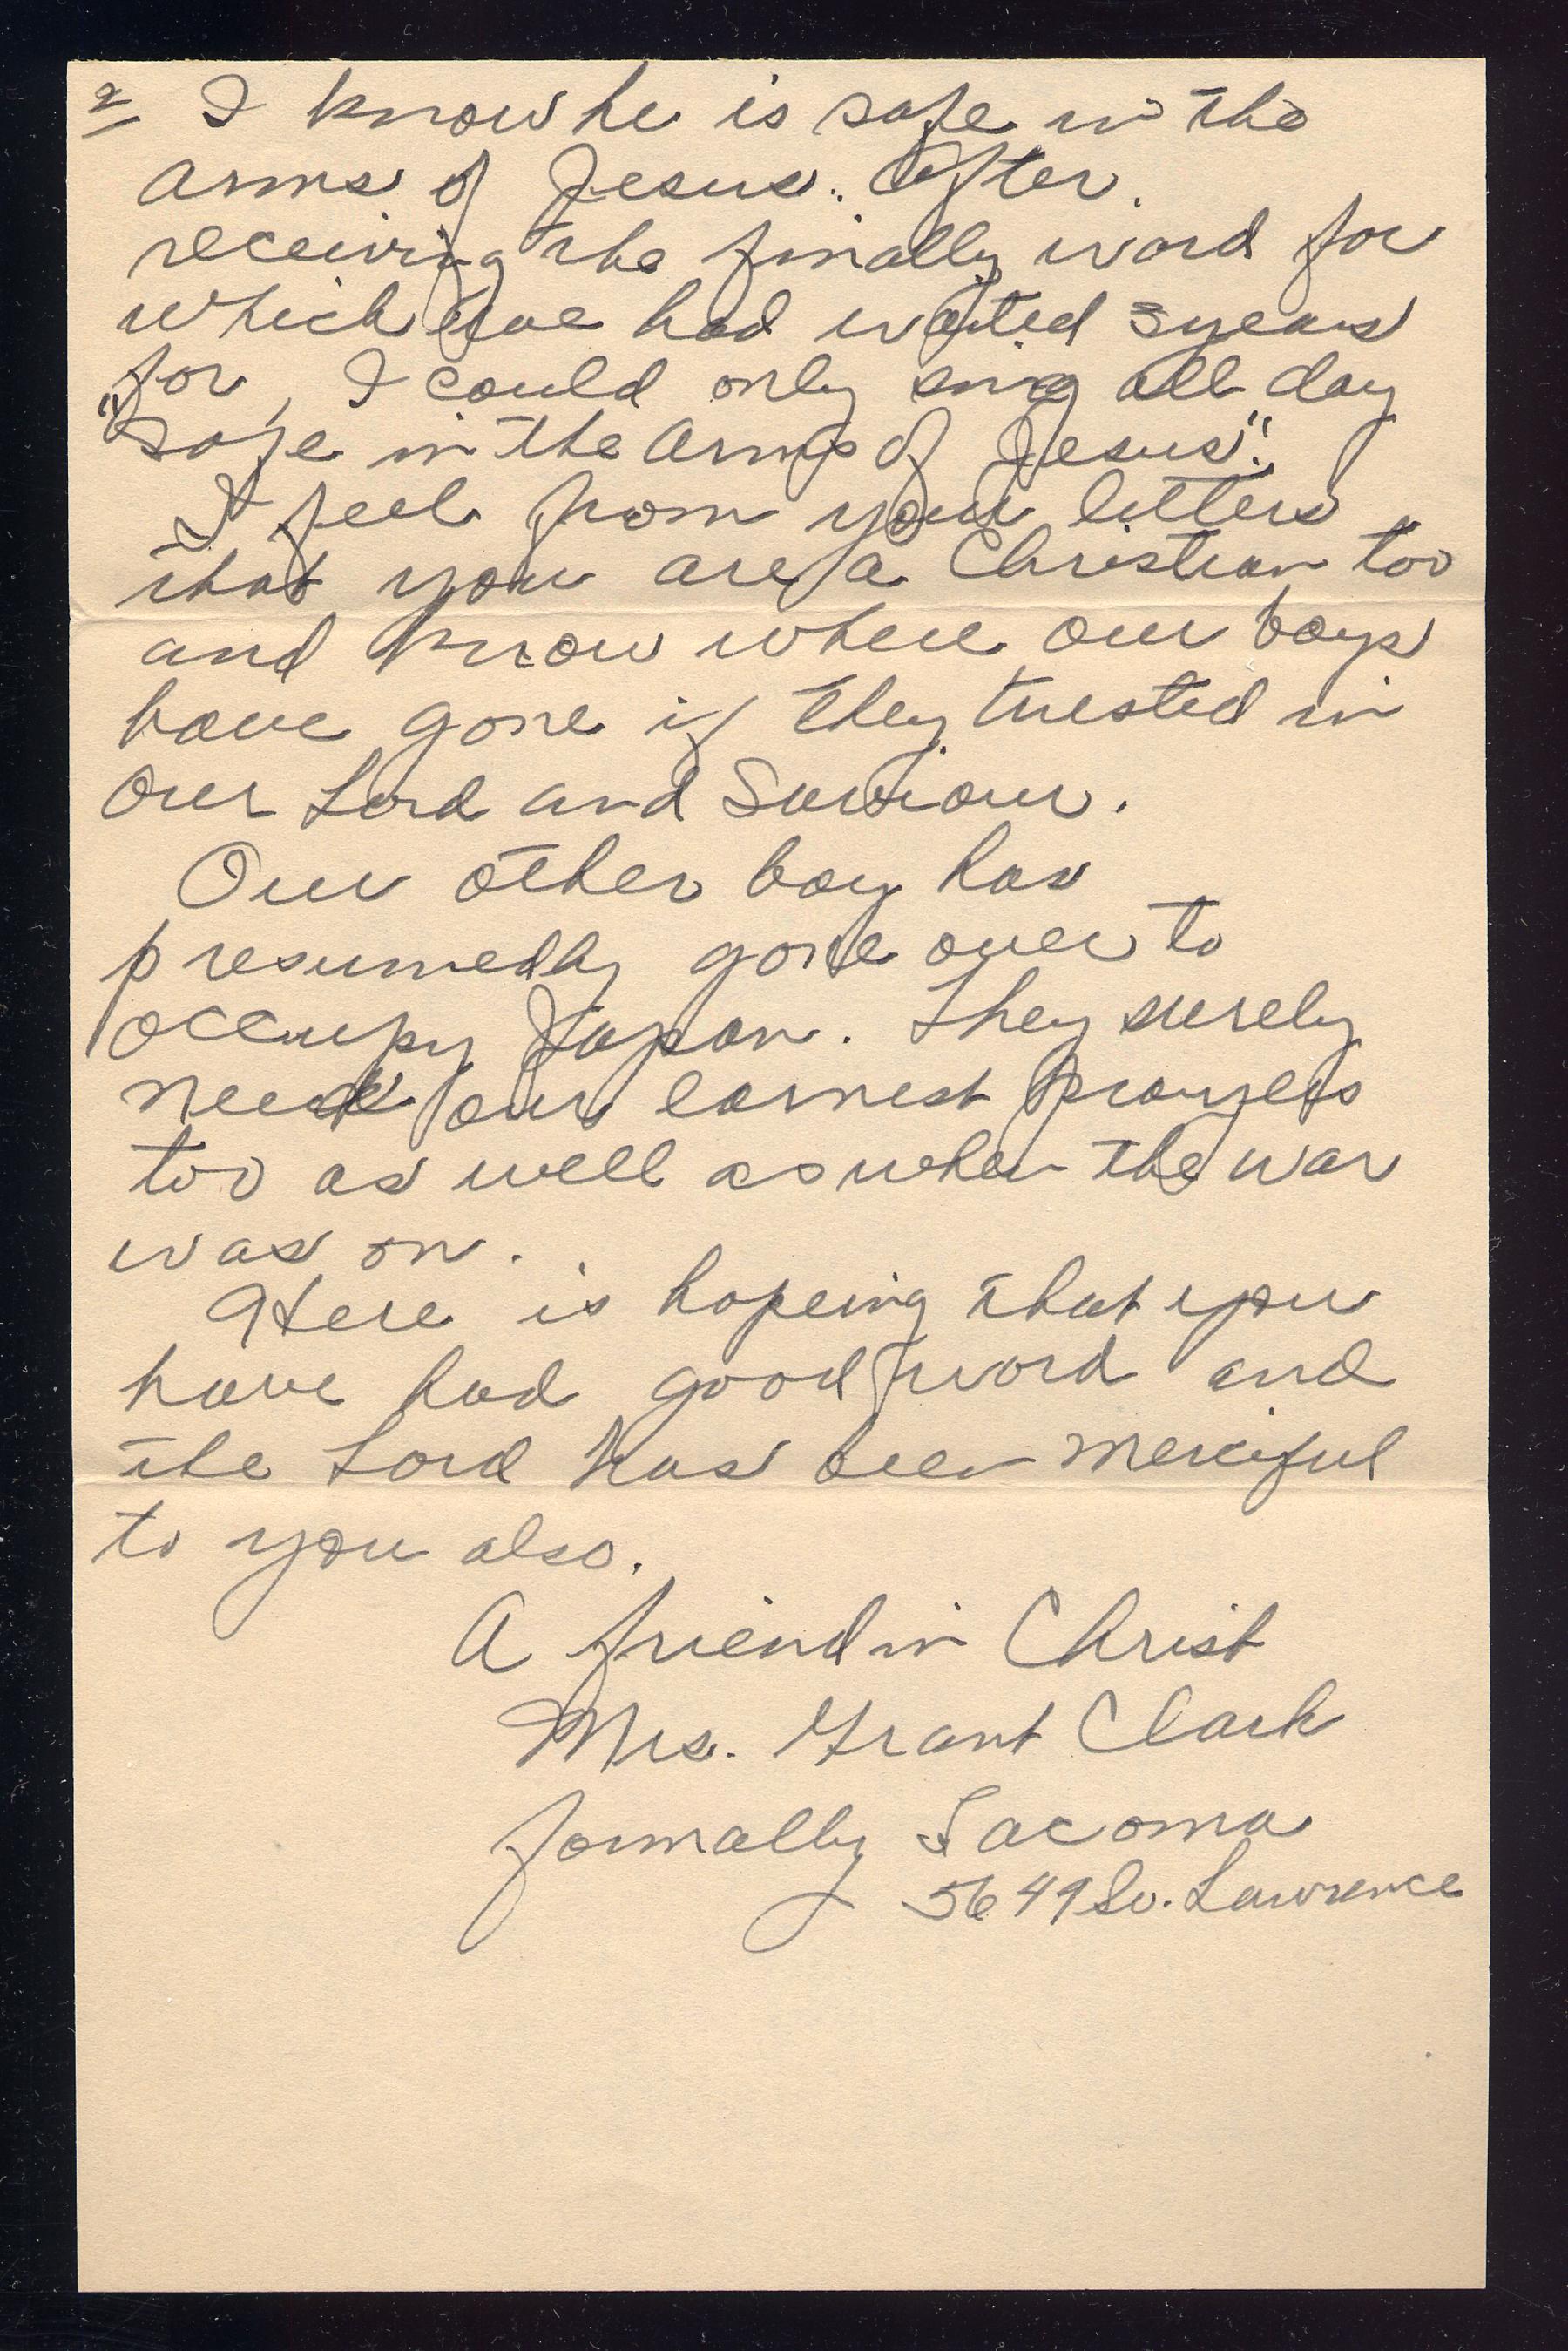 2 I know he is safe in the
arms of Jesus. After
receiving the finally word for
which we had waited 3 years
for, I could only sing all day
"Safe in the Arms of Jesus".
I feel from your letters
that you are a Christian too
and know where our boys
have gone if they trusted in
Our Lord and Saviour.
Our other boy has
presumedly gone over to
occupy Japan. They surely
need our earnest prayers
too as well as when the war
was on.
Here is hopeing that you
have had good word and
the Lord has been merciful
to you also.
A friend in Christ
Mrs. Grant Clark
formally Tacoma
5649 So. Lawrence